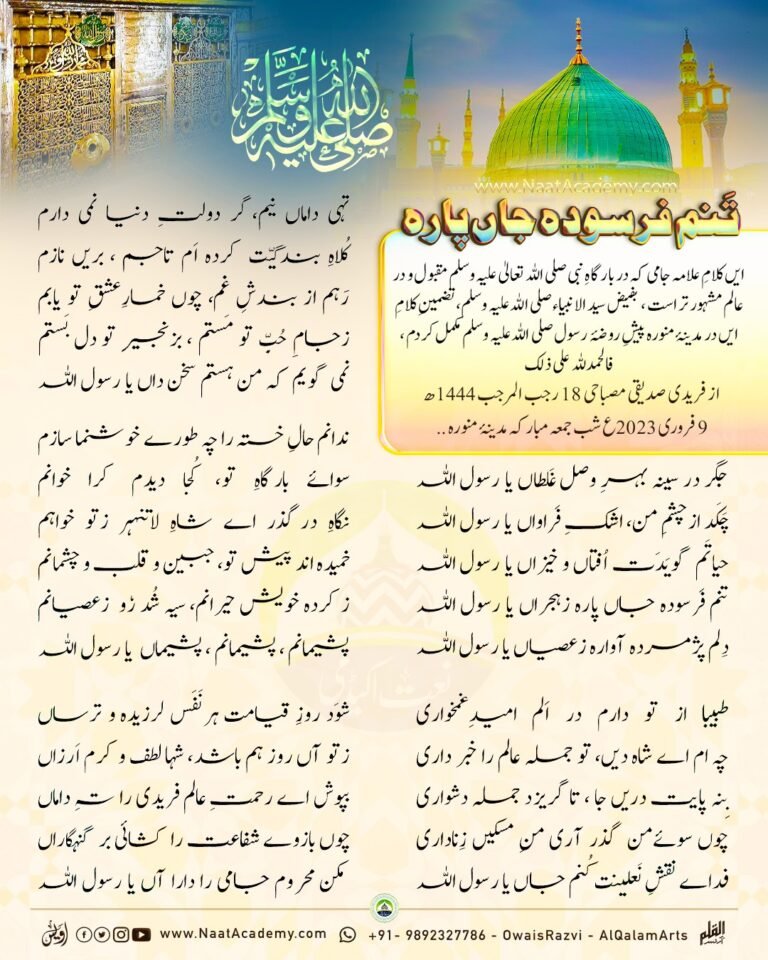 صلى الله عليه وسلم
www.NaatAcademy.com
تَنم فرسودہ جاں پارہ
ایں کلامِ علامہ جامی کہ در بارگاہِ نبی صلی اللہ تعالیٰ علیہ وسلم مقبول و در
عالم مشہور تر است ، بفیض سید الانبیاء صلی اللہ علیہ وسلم، تضمین کلامِ
ایں در مدینۂ منورہ پیشِ روضۂ رسول صلی اللہ علیہ وسلم مکمل کردم ،
فالحمدللہ علی ذلک
از فریدی صدیقی مصباحی 18 رجب المرجب 1444ھ
9 فروری 2023ع شب جمعہ مبارکہ مدینۂ منورہ ..
جگر در سینہ بہرِ وصل غَلطاں یا رسول اللہ
چَکَد از چشمِ من، اشکِ فَراواں یا رسول اللہ
حیاتَم گویدَت اُفتاں و خیزاں یا رسول اللہ
تنم فَرسودہ جاں پارہ زہجراں یا رسول اللہ
دِلم پژمردہ آوارہ زعصیاں یا رسول اللہ
طبیبا از تو دارم در اَلم امیدِ غمخواری
چہ ام اے شاہ دیں، تو جملہ عالم را خبر داری
بِنہ پایت دریں جا ، تا گریزد جملہ دشواری
چوں سوئے من گذر آری منِ مسکیں زِناداری
فداے نقشِ نَعلینت کُنم جاں یا رسول اللہ
تہی داماں نیم، گر دولتِ دنیا نمی دارم
کُلاہِ بندگیّت کردہ اَم تاجم ، بریں نازم
رَہم از بندشِ غم، چوں خمارِ عشقِ تو یابم
زجامِ حُبّ تو مَستم ، بزنجیر تو دل بَستم
نمی گویم کہ من ہستم سخن داں یا رسول اللہ
ندانم حالِ خستہ را چہ طورے خوشنما سازم
سوائے بارگاہِ تو، کُجا دیدم کرا خوانم
نگاہِ در گذر اے شاہِ لاتنہر ز تو خواہم
خمیدہ اند پیش تو، جبین و قلب و چشمانم
ز کردہ خویش حیرانم، سیہ شُد رُو زعصیانم
پشیمانم ، پشیمانم ، پشیماں یا رسول اللہ
شوَد روزِ قیامت ہر نَفَس لرزیدہ و ترساں
ز تو آں روز ہم باشد، شہا لطف و کرم اَرزاں
بپوش اے رحمتِ عالم فریدی را تہِ داماں
چوں بازوے شفاعت را کشائی بر گنہگاراں
مکن محروم جامی را درا آں یا رسول اللہ
www.NaatAcademy.com +91- 9892327786 - OwaisRazvi - AlQalamArts